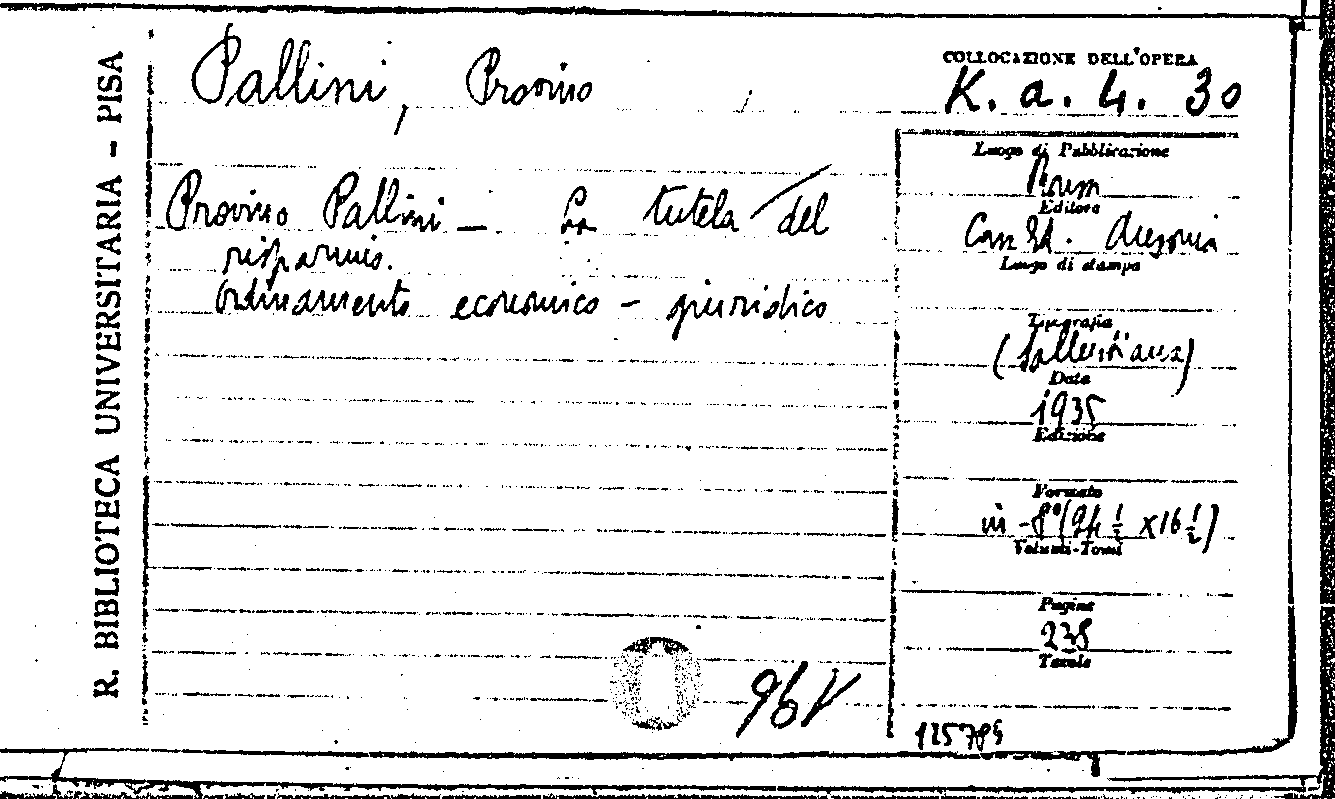 R. BIBLIOTECA UNIVERSITARIA - PISA
Pallini, Provino
COLLOCAZIONE DELL'OPERA
K. a. 4. 30
Provino Pallini - La tutela del
risparmio.
Ordinamento economico - giuridico
Luogo di Pubblicazione
Roma
Editore
Casa Ed. Ausonia
Luogo di stampa
Tipografia
(Sallustiana)
Data
1935
Edizione
Formato
in -8° (24 ½ x 16 ½)
Volumi-Tomi
Pagine
238
Tavole